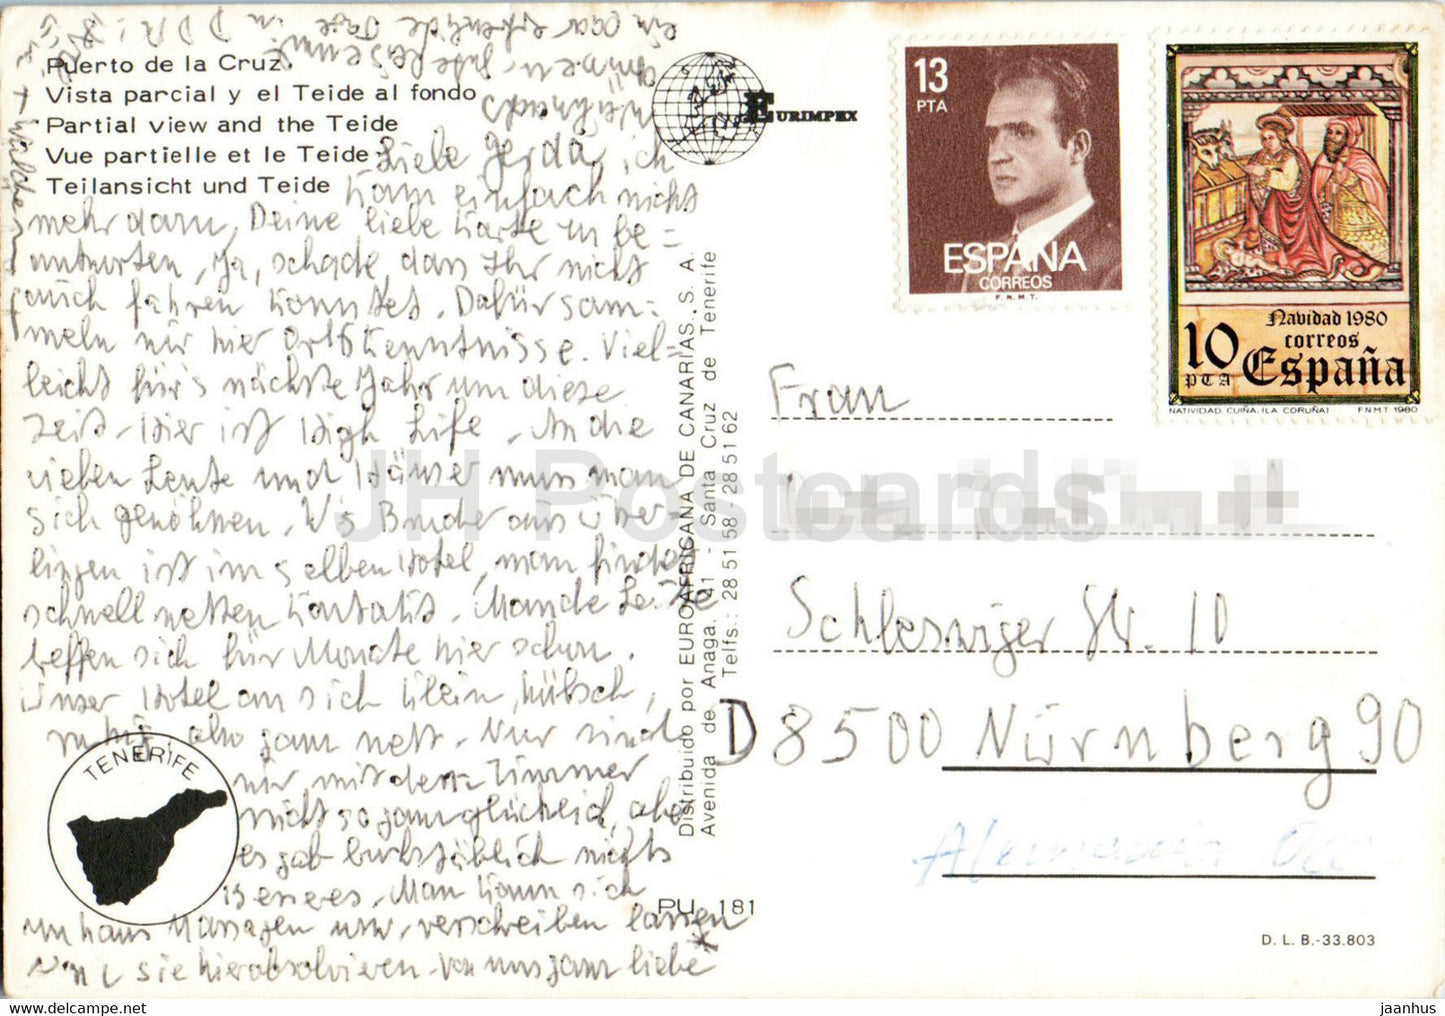 Puerto de la Cruz.
Vista parcial y el Teide al fondo
Partial view and the Teide
Vue partielle et le Teide
Teilansicht und Teide
Liebe Gerda, ich
kam einfach nicht
mehr dazu, Deine liebe Karte zu be=
antworten. Ja, schade, dass Ihr nicht
auch fahren konntet. Dafür sam=
meln wir hier Ortskenntnisse. Viel=
leicht für's nächste Jahr um diese
Zeit. Hier ist High Life. An die
vielen Leute und Häuser muss man
sich gewöhnen. W's Bruder aus Über=
lingen ist im selben Hotel, man findet
schnell netten Kontakt. Manche Leute
treffen sich für Monate hier schon.
Unser Hotel an sich klein, hübsch,
ruhig, also ganz nett. Nur sind
wir mit dem Zimmer
nicht so ganz glücklich, aber
es gab buchstäblich nichts
Besseres. Man kann sich
zu Haus Massagen usw. verschreiben lassen
und sie hier absolvieren. Von uns ganz liebe *
Wünsche
ein paar erholsame Tage in DDR!
+ Walther
TENERIFE
EURIMPEX
Distribuido por EUROAFRICANA DE CANARIAS, S. A.
Avenida de Anaga, 41 - Santa Cruz de Tenerife
Telfs.: 28 51 58 - 28 51 62
PU 181
13
PTA
ESPAÑA
CORREOS
F.N.M.T.
Navidad 1980
correos
10
PTA
España
NATIVIDAD CUIÑA. (LA CORUÑA) F N M T 1980
Frau
Schleswiger Str. 10
D 8500 Nürnberg 90
Alemania Occ
D. L. B.-33.803
JH Postcards
jaanhus